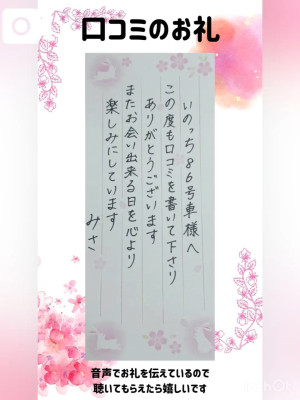 口コミのお礼
いのっち86号車様へ
この度も口コミを書いて下さり
ありがとうございます
またお会い出来る日を心より
楽しみにしています
みさ
音声でお礼を伝えているので
聴いてもらえたら嬉しいです